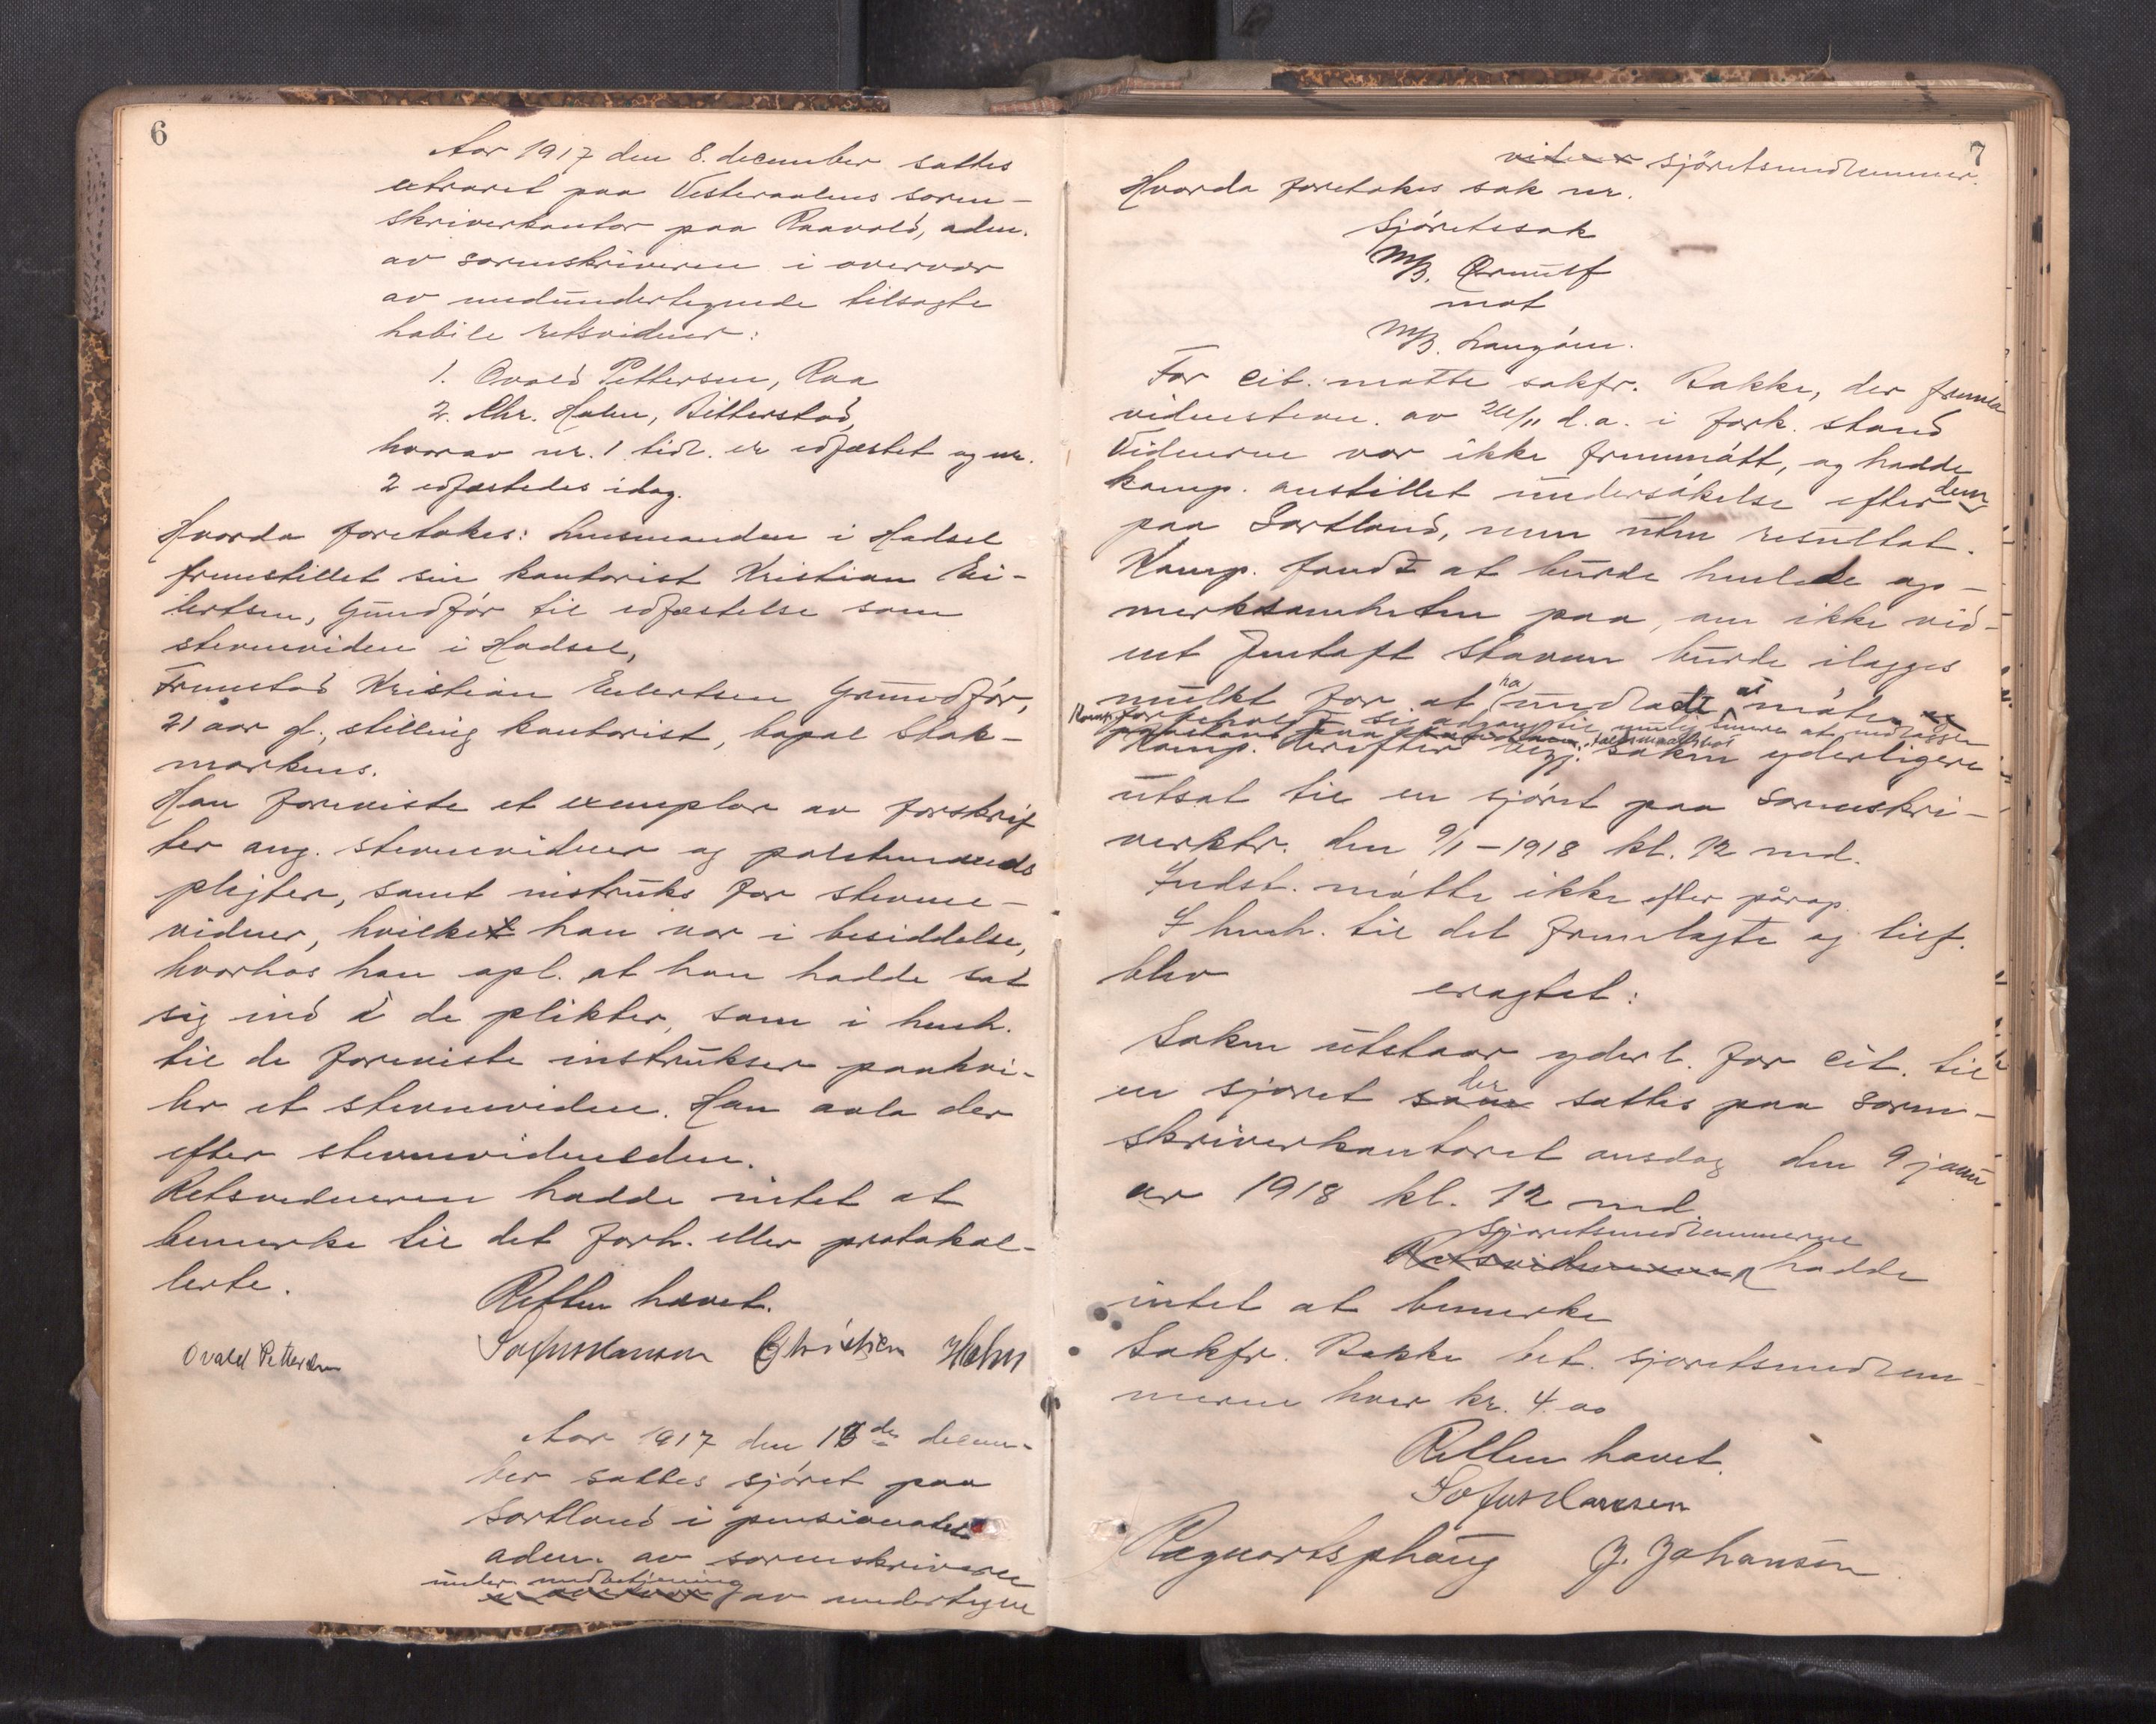 6
Aar 1917 den 8. december sattes
extraret paa Vesteraalens soren-
skriverkontor paa Raavold, adm.
av sorenskriveren i overvær
av medundertegnede tilsagte
habile retsvidner:
1. Ovald Pettersen, Raa
2. Chr. Holm, Bitterstad,
hvorav nr. 1 tidl. er edfæstet og nr.
2 edfæstedes idag.
Hvorda foretokes: Lensmanden i Hadsel
fremstillet sin kontorist Kristian Ei-
lertsen, Grundfør til edfæstelse som
stevnevidne i Hadsel,
Fremstod Kristian Eilertsen Grundfør,
21 aar gl., stilling kontorist, bopæl Stok-
markens.
Han foreviste et exemplar av forskrif
ter ang. stevnevidner og polstemænds
pligter, samt instruks for stevne-
vidner, hvilket han var i besiddelse,
hvorhos han opl. at han hadde sat
sig ind i de plikter, som i henh.
til de foreviste instrukser paahvi-
ler et stevnevidne. Han avla der
efter stevnevidneeden.
Retsvidnerne hadde intet at
bemerke til det forh. eller protokol-
lerte.
Retten hævet.
Ovald Pettersen Sofus Hansen Christian Holm
Aar 1917 den 13de decem-
ber sattes sjöret paa
Sortland i pensionatet
adm. av sorenskriveren
under medbetjening
av undertegne
7
sjöretsmedlemmer.
Hvorda foretokes sak nr.
Sjöretssak
M/B. Ørnulf
mot
M/B. Langöen.
For cit. møtte sakfr. Bakke, der fremla
vidnestevn. av 24/11 d.a. i fork. stand
Vidnerne var ikke fremmött, og hadde
komp. anstillet undersökelse efter dem
paa Sortland, men uten resultat.
Komp. fandt at burde henlede op-
merksomheten paa, om ikke vid-
net Jentoft Stavem burde ilægges
mulkt for at ha undladt at möte
Komp. forbeholdt sig adgang til mulig senere at nedlægge
paastand paa
Komp. derefter begj. saken yderligere
utsat til en sjöret paa sorenskri-
verktr. den 9/1-1918 kl. 12 md.
Indst. mötte ikke efter pårop.
I henh. til det fremlagte og tilf.
blev
eragtet:
Saken utstaar yderl. for cit. til
en sjøret der sættes paa soren-
skriverkontoret onsdag den 9 janu
ar 1918 kl. 12 md.
sjøretsmedlemmerne
Retsvidnerne hadde
intet at bemerke
Sakfr. Bakke bet. sjøretsmedlem-
merne hver kr. 4.00
Retten hævet.
Sofus Hansen
J. Johansen